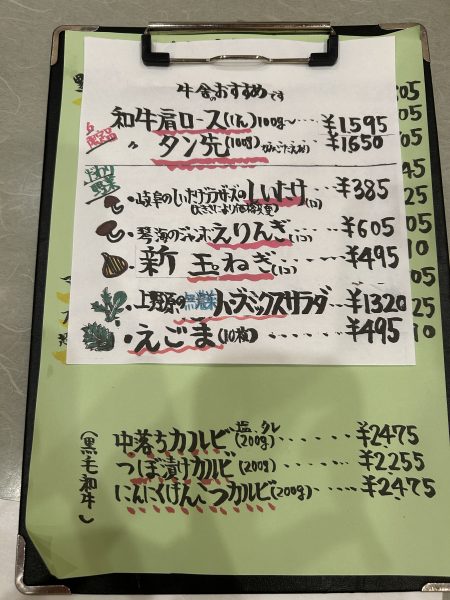 牛舎のおすすめです
和牛肩ロース(1人)100g~ ¥1595
〃 タン先(100g) ¥1650
岐阜のしいたけブラザーズのしいたけ(1コ) ¥385
琴海のジャンボえりんぎ(1コ) ¥605
新玉ねぎ(1コ) ¥495
上野原の無農薬ハージックスサラダ ¥1320
えごま(10枚) ¥495
塩、タレ
中落ちカルビ(200g) ¥2475
つぼ漬けカルビ(200g) ¥2255
にんにくげんこつカルビ(200g) ¥2475
(黒毛和牛)
05
05
45
25
05
10
05
25
10